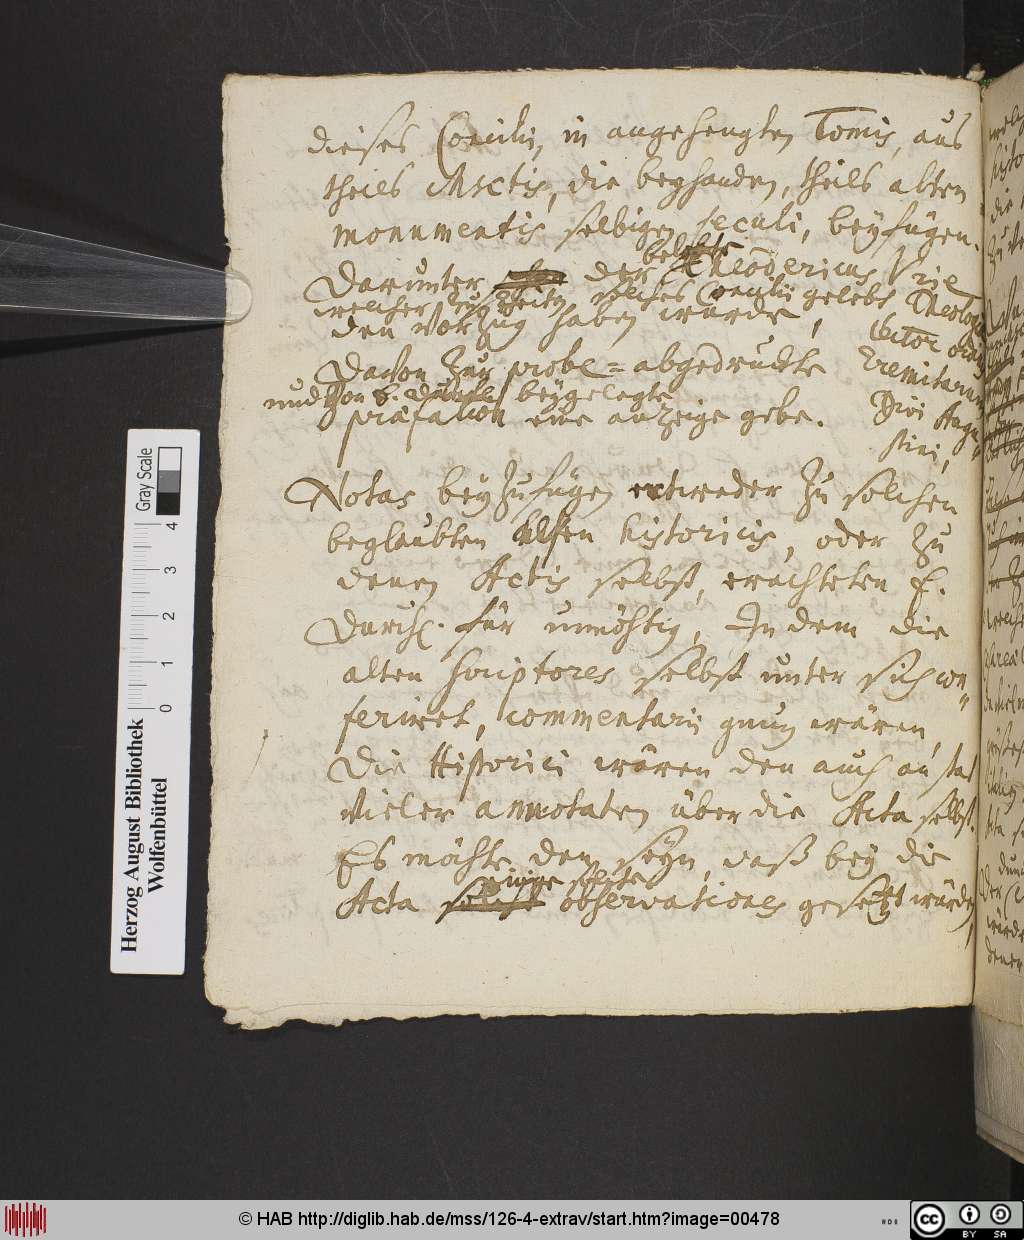 dieses Concilii, in angehengten Tomis, aus
theils MSCtis, die beyhanden, theils alten
monumentis selbigen seculi, beyfügen.
belobte
Darunter der Theodericus Vrie
welcher zu Zeiten solches Concilii gelebt Theologiae
den Vorzug haben würde, Lector ordinis
Davon zur probe abgedruckte Eremitarum
und von E. Durchl. beygelegte Divi Augu
praefation eine anzeige gebe. stini,
Notas beyzufügen entweder zu solchen
beglaubten alten historicis, oder zu
denen Actis selbst, erachteten E.
Durchl. für unnöhtig, Indem die
alten scriptores selbst unter sich con
feriret, commentarii gnug wären,
Die Historici wären den auch an stat
vieler annotaten über die Acta selbst.
Es möchte den seyn, daß bey die
einige
Acta observationes gesetzt würden,
Herzog August Bibliothek
Wolfenbüttel
Gray Scale
0 1 2 3 4
© HAB http://diglib.hab.de/mss/126-4-extrav/start.htm?image=00478
cc BY SA